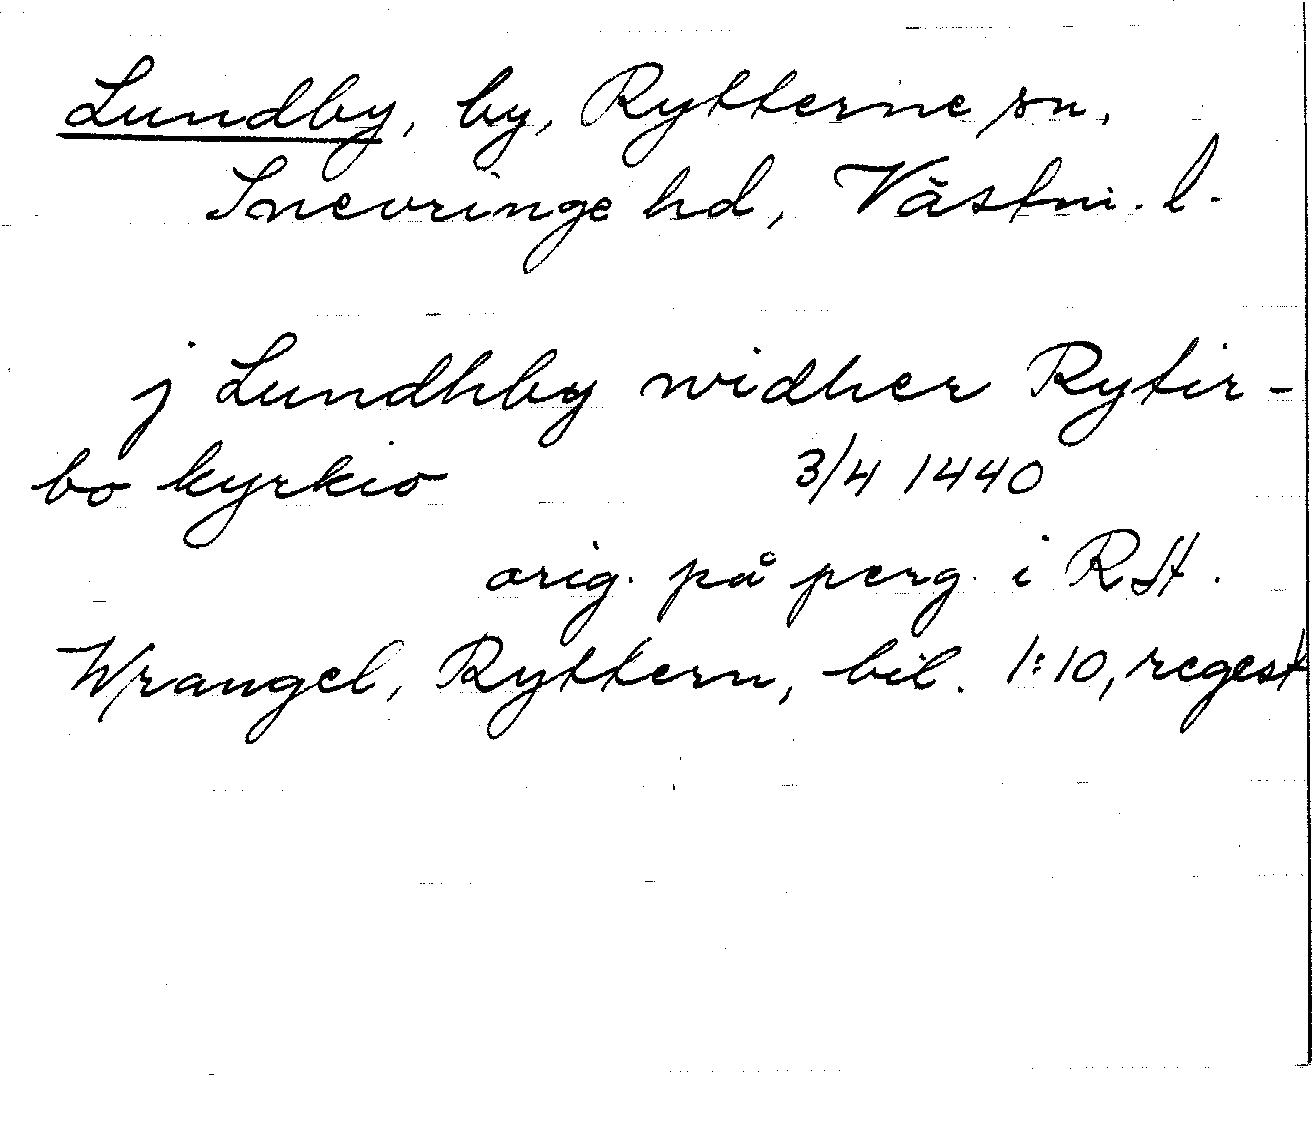 Lundby, by, Rytterne sn,
Snevringe hd, Västm. l.
j Lundhby widher Rytir-
bo kyrkio 3/4 1440
orig. på perg. i RA.
Wrangel, Ryttern, bil. 1:10, regest